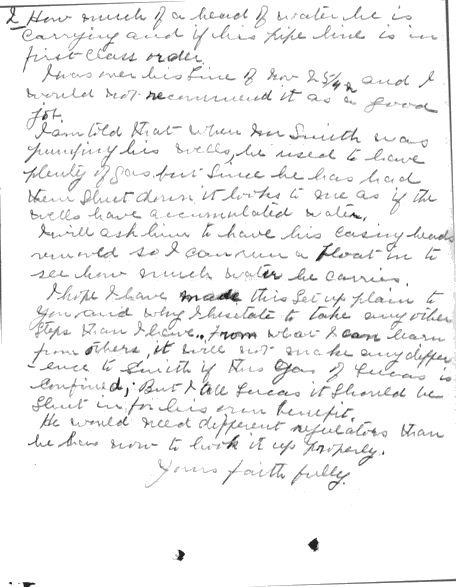 2 How much of a head of water he is
carrying and if his pipe line is in
first class order.
I was over his line of Nov 25/42 and I
would not recommend it as a good
job.
I am told that when Mr Smith was
pumping his wells, he used to have
plenty of gas but since he has had
them shut down it looks to me as if the
wells have accumulated water.
I will ask him to have his casing heads
so I can run a float in to
see how much water he carries.
I hope I have made this set up plain to
you and why I hesitate to take any other
steps than I have, from what I can learn
from others, it will not make any differ
-ence to Smith if this gas of Lucas is
confined, But I tell Lucas it should be
shut in for his own benefit.
He would need different regulators than
he has now to hook it up properly.
Yours faithfully.